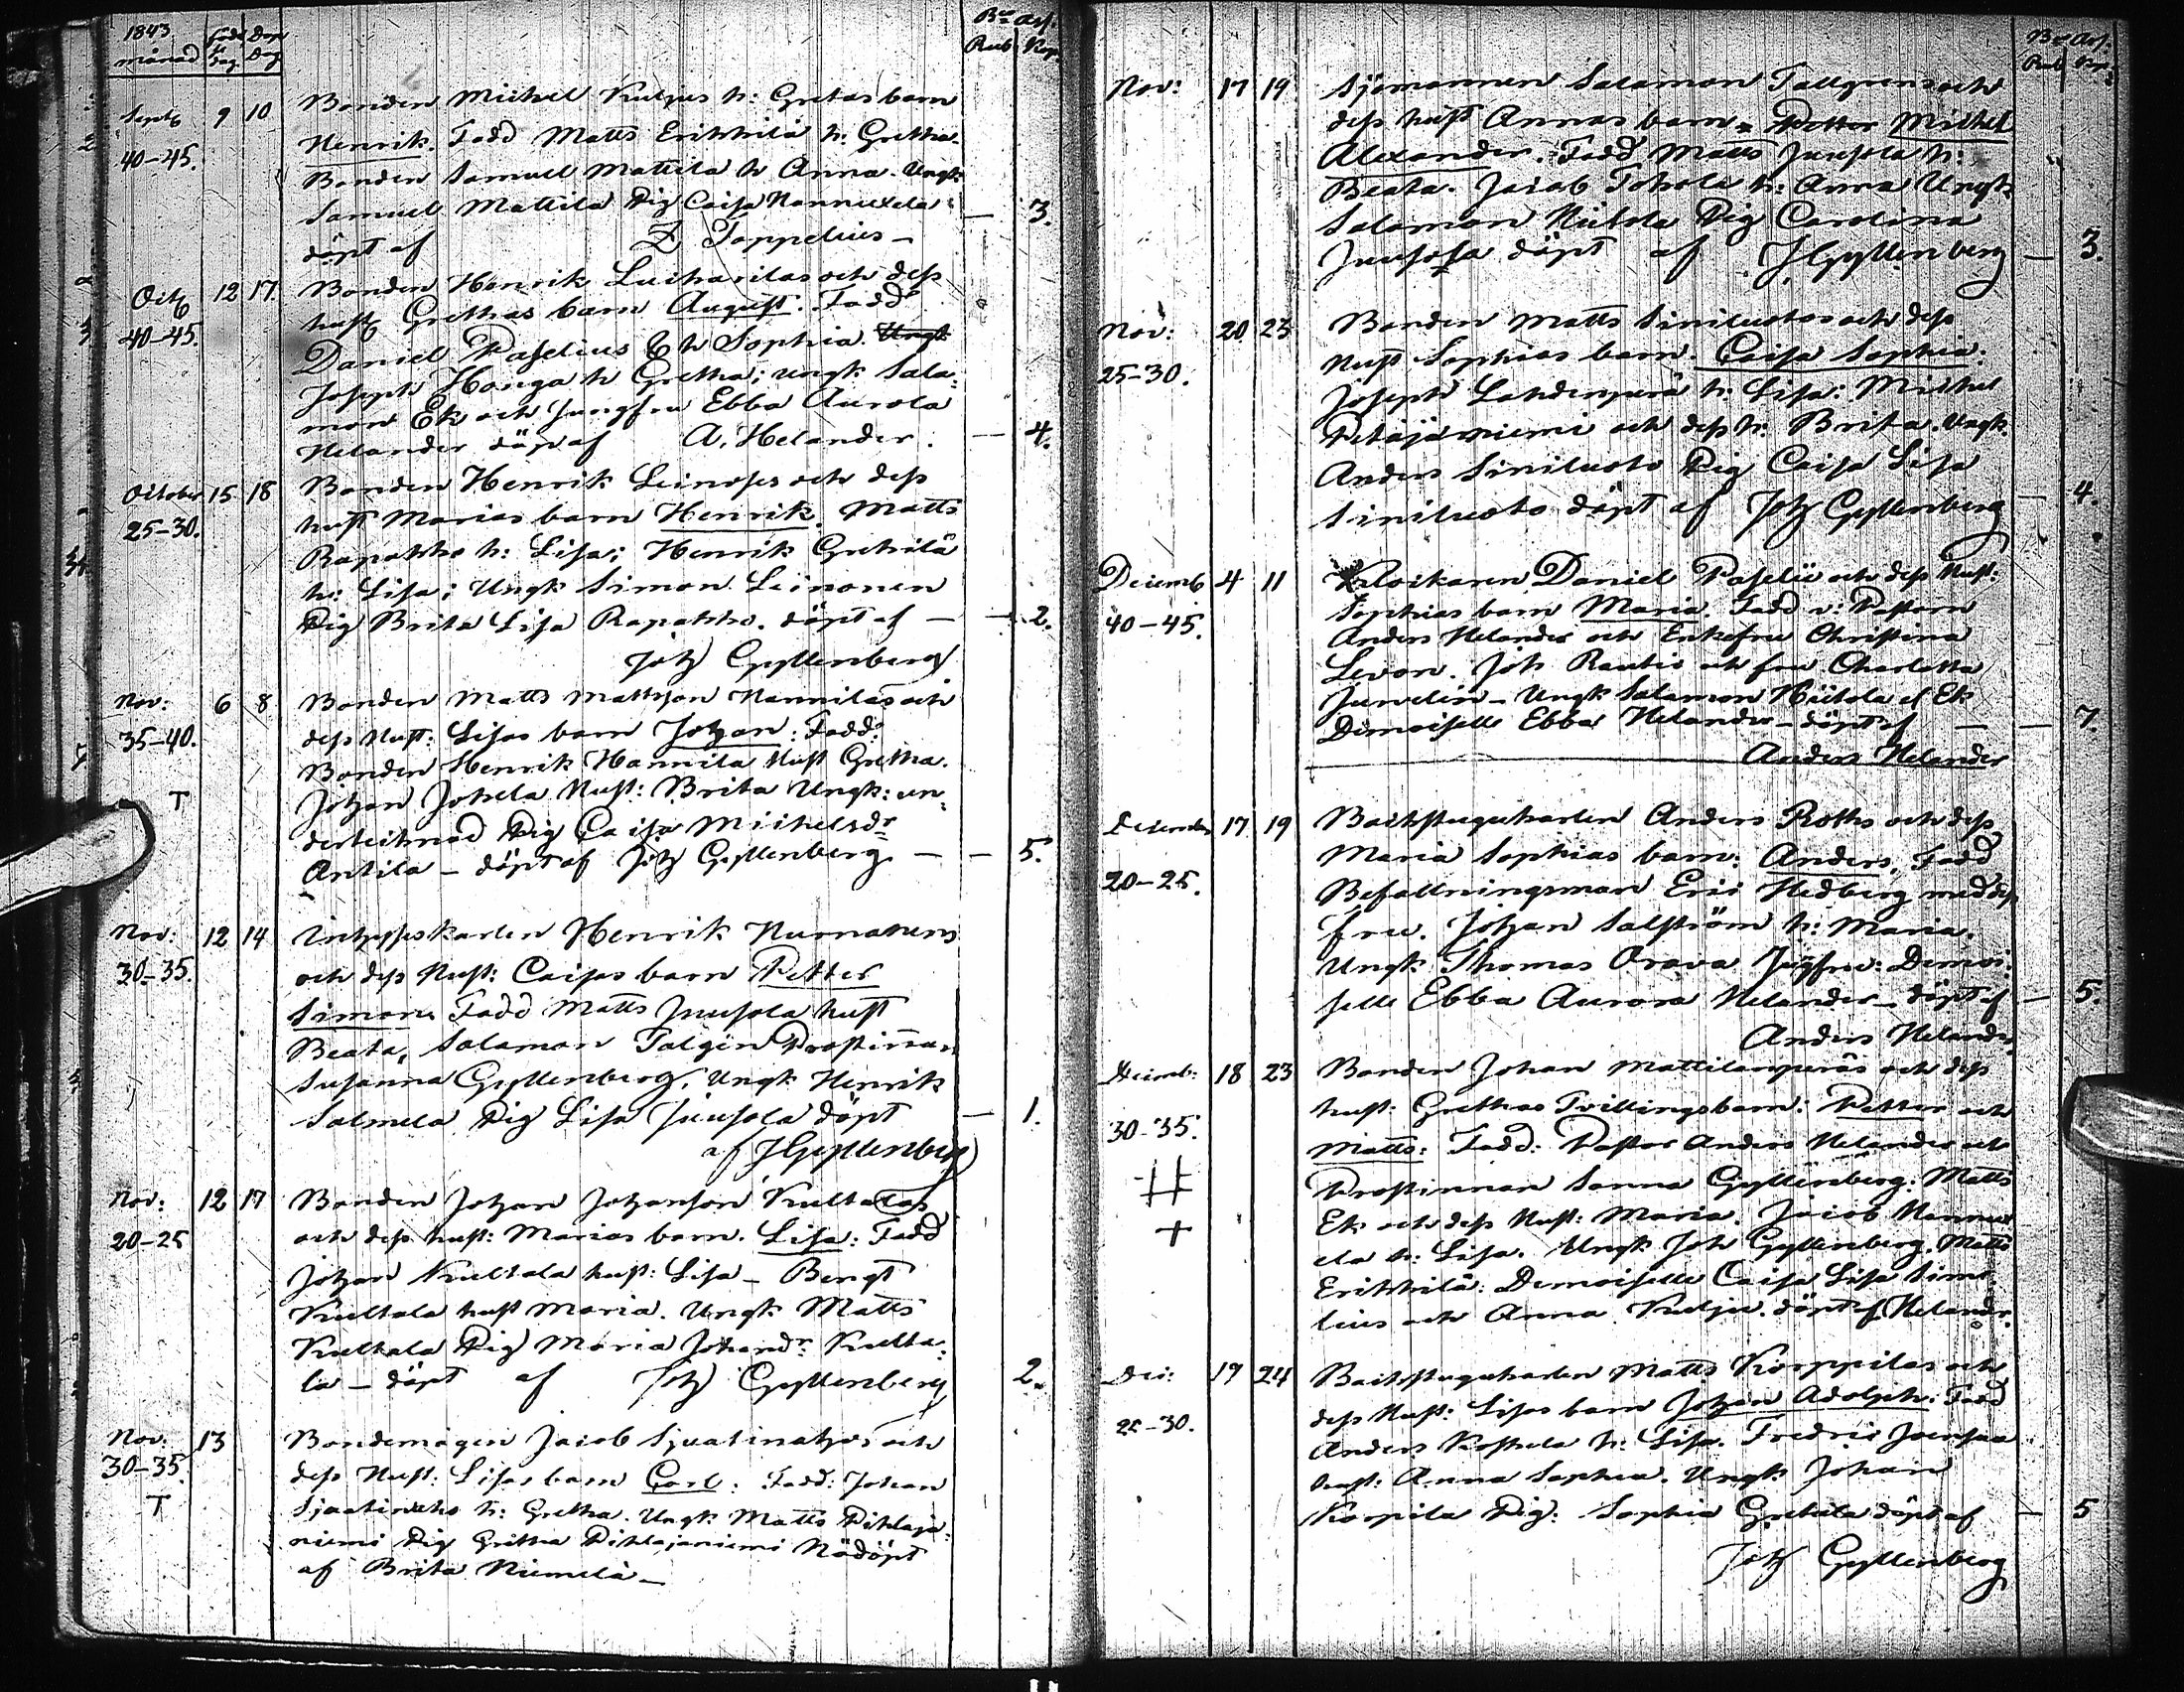 1843 månad Föds Dag Dop Dag Rub Kop.
Septb 9 10 Bonden Michel Kuljus h: Gretas barn
40-45. Henrik. Fadd Matts Erikkilä h: Gretha.
Bonden Samuel Mattila h Anna. Ungk:
Samuel Mattila Pig Caisa Nannuxela — 3.
döpt af Z Toppelius —
Octb 12 17 Bonden Henrik och dess
40-45. hust Grethas barn August. Fadd
Daniel Paselius & h Sophia. Ungk
Joseph Honga h Gretha; ungk Sala=
mon Ek och Jungfru Ebba Aurola
Helander döp af A. Helander. — 4.
October 15 18 Bonden Henrik Leinoses och dess
25-30. hust Marias barn Henrik. Matts
Rapakko h: Lisa; Henrik
h: Lisa; Ungk Simon Leinonen
Pig Brita Lisa Rapakko. döpt af — — 2.
Joh Gyllenberg
Nov: 6 8 Bonden Matts Mattsson Hannilas och
35-40. dess Hust: Lisas barn Johan: Fadd:
Bonden Henrik Hannila Hust Gretha.
T Johan Jokela Hust: Brita Ungk: un=
dertecknad Pig Caisa Michelsdr
Antila — döpt af Joh Gyllenberg — — 5.
Nov: 12 14 Henrik
30-35. och dess Hust: Caisas barn Petter
Simon. Fadd Matts Juusola hust
Beata, Salamon Talgen Prostinnan
Susanna Gyllenberg. Ungk Henrik
Salmela Pig Lisa Juusola döpt — 1.
af J Gyllenberg
Nov: 12 17 Bonden Johan Johansson Kultalas
20-25 och dess hust: Marias barn. Lisa: Fadd
Johan Kultala hust: Lisa — Bengt
Kultala hust Maria. Ungk Matts
Kultala Pig Maria Johandr Kulta=
la — döpt af Joh Gyllenberg 2.
Nov: 13 Bondemågen Jacob och
30-35. dess Hust: Lisas barn Carl: Fadd: Johan
T h: Gretha. Ungk: Matts Pihlaja=
niemi Pig Gretha Pihlajaniemi Nödöpt
af Brita Niemelä —
Rub Kop.
Nov: 17 19 Sjömannen Salamon Tallgrens och
dess hust Annas barn Petter Michel
Alexander. Fadd Matts Juusola h:
Beata. Jacob Tokola h: Anna Ungk
Salamon Hiitola Pig Carolina
Juusola döpt af J Gyllenberg — 3.
Nov: 20 23 Bonden Matts Siniluotos och dess
25-30. Hust Sophias barn. Caisa Sophia.
Joseph Lahdenperä h: Lisa: Michel
Petäjäniemi och dess h: Brita. Ungk.
Anders Siniluoto Pig Caisa Lisa
Siniluoto döpt af Joh Gyllenberg — 4.
Decemb 4 11 Klockaren Daniel Paselii och dess Hust:
40-45. Sophias barn Maria. Fadd v: Pastorn
Anders Helander och Enkefru Christina
Levon. Joh Rautio och fru Charlotta
Junelin — Ungk Salamon Hiitola el Ek
Demoiselle Ebba Helander — döpt af — — 7.
Anders Helander
December 17 19 Backstugukarlen Anders Roths och dess
Maria Sophias barn: Anders. Fadd
20-25. Befallningsman Eric Hedberg med dess
fru. Johan Salström h: Maria.
Ungk Thomas Orava Jgfru: Demoi=
selle Ebba Aurora Helander — döpt af — 5.
Anders Helander
Decemb: 18 23 Bonden Johan Mattilanperäs och dess
30-35. hust: Grethas Tvillingsbarn: Petter och
Matts: Fadd: Pastor Anders Helander och
Prostinnan Sanna Gyllenberg. Matts
+ Ek och dess Hust: Maria. Jacob Nannux
ela h: Lisa. Ungk Joh Gyllenberg. Matts
Erikkilä: Demoiselle Caisa Lisa Sime
lius och Anna Kulju. döpt af Helander.
Dec: 19 24 Backstugukarlen Matts Korppilas och
25-30. dess Hust: Lisas barn Johan Adolph: Fadd
Anders Koskela h: Lisa. Fredric Joensuu
hust: Anna Sophia. Ungk Johan
Korpila Pig: Sophia döpt af — 5
Joh Gyllenberg